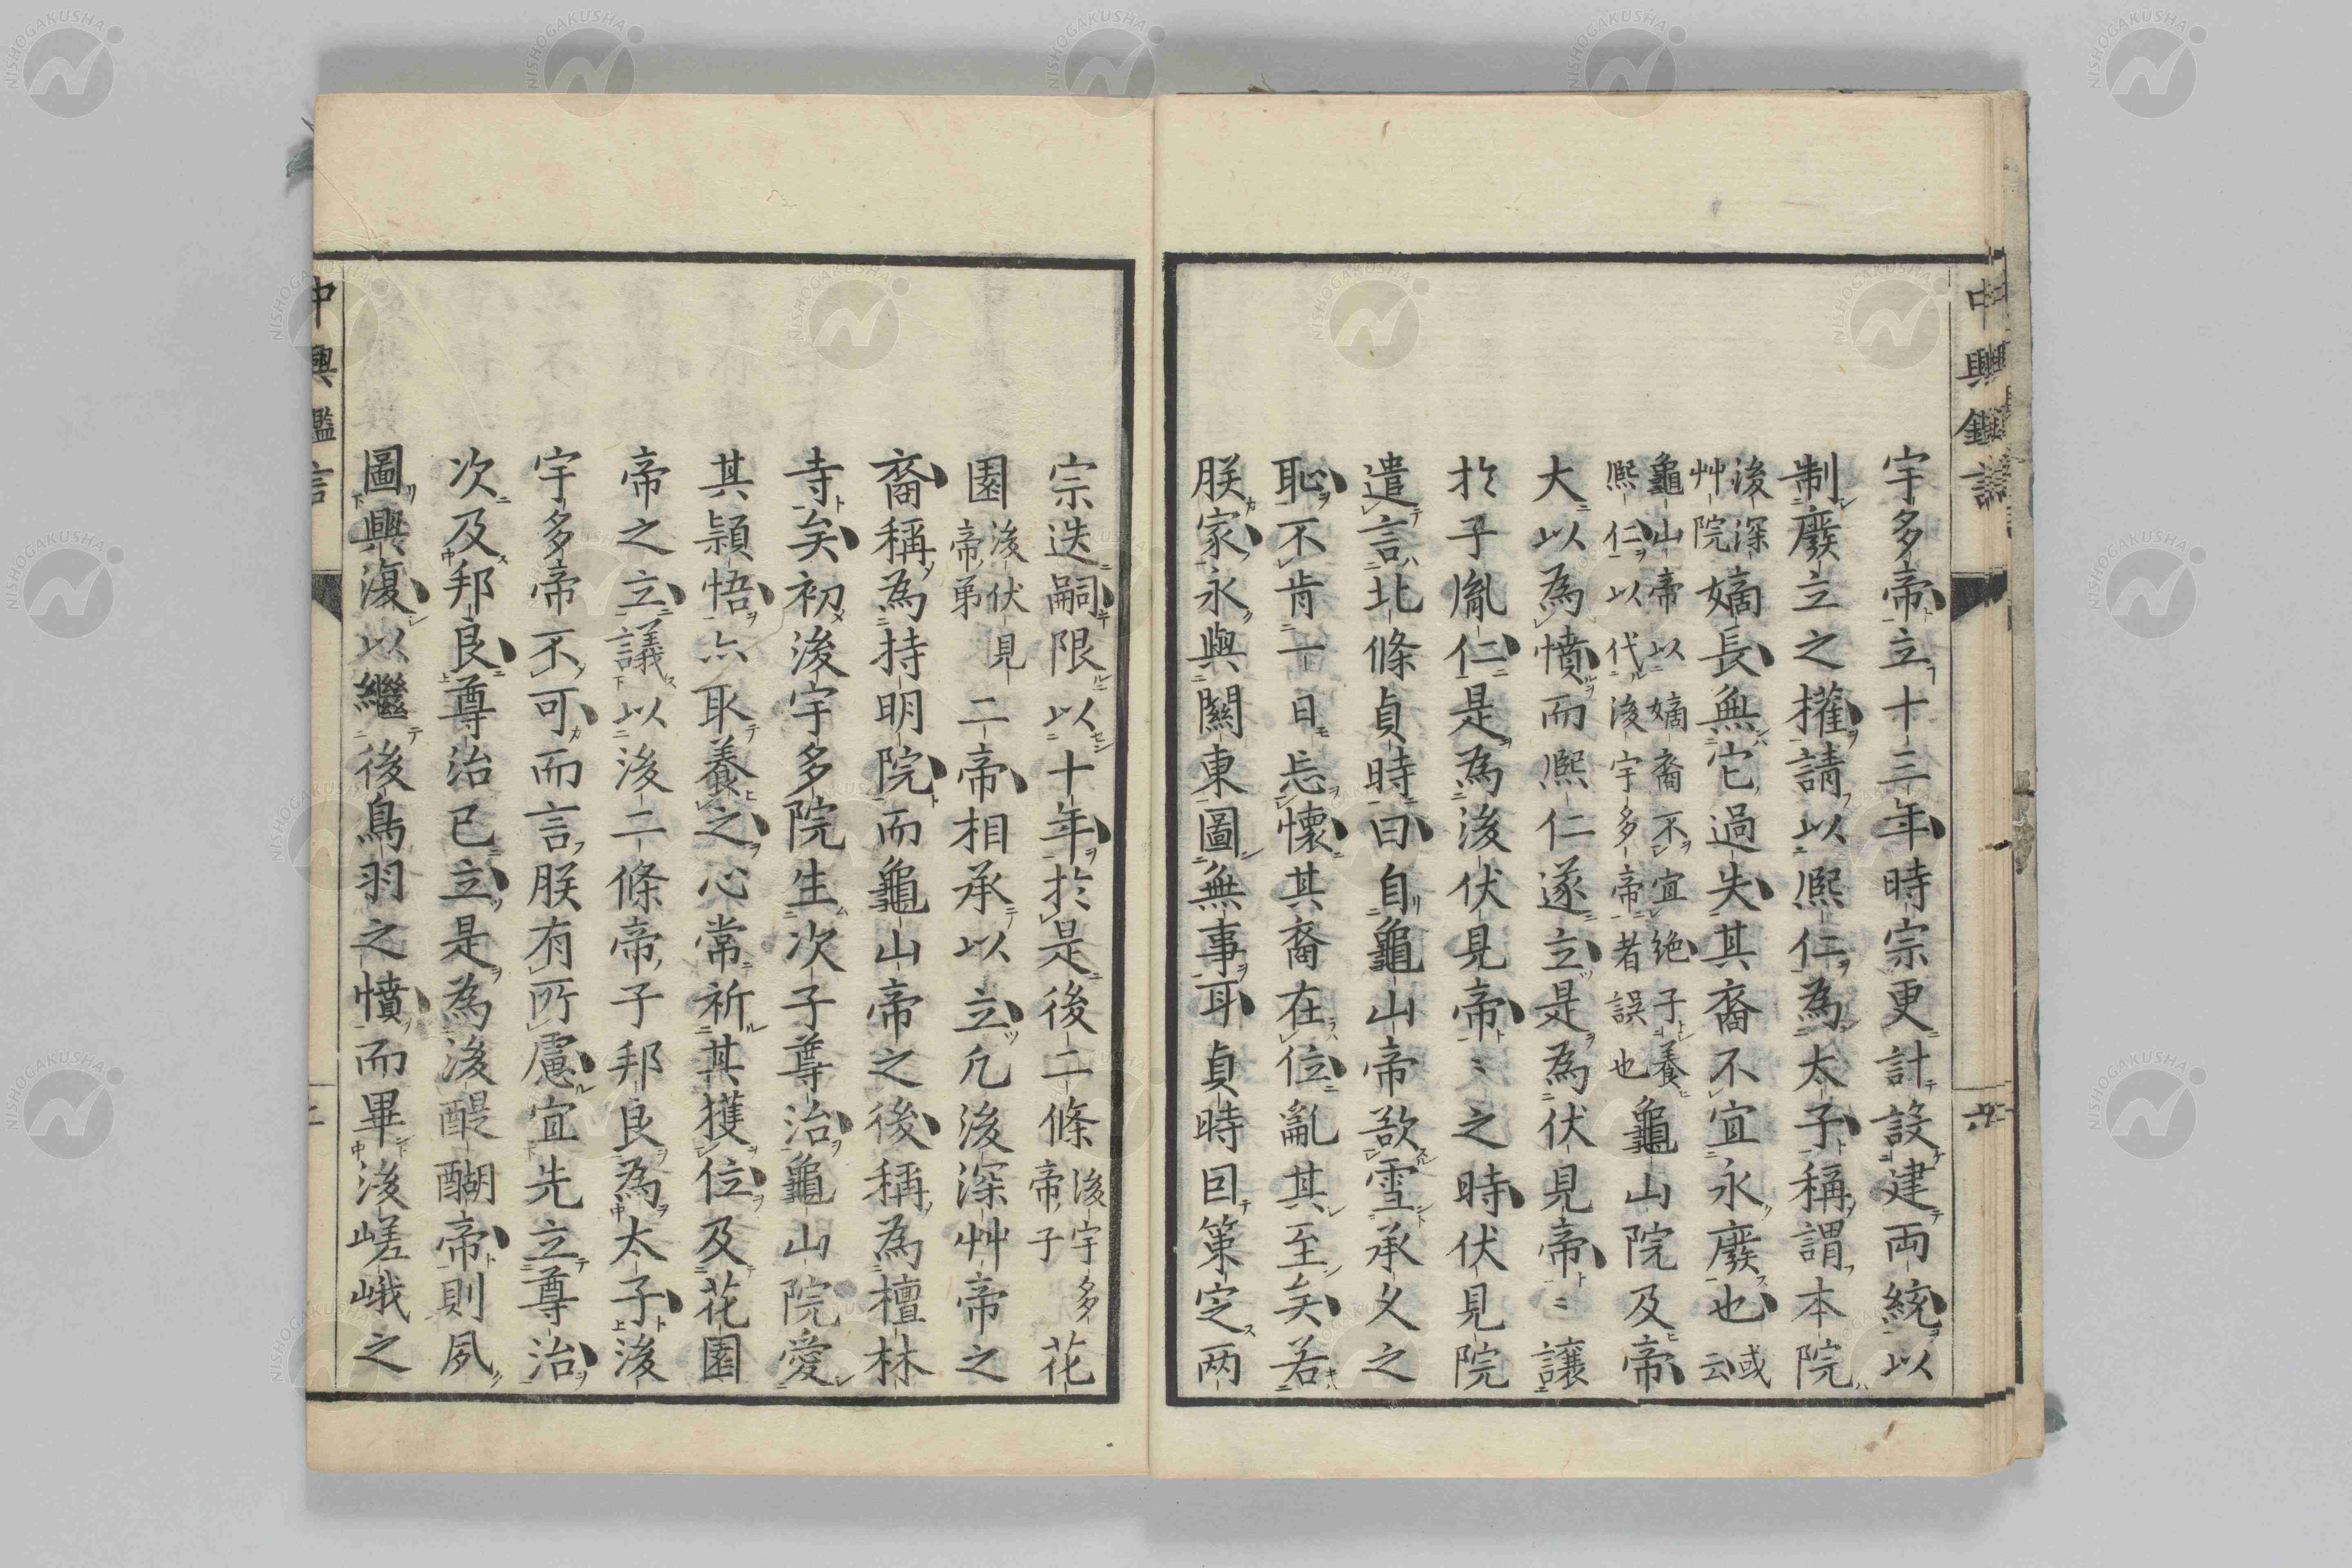 宇多帝立十三年時宗更計設建両統以
制廢立之權請以熈仁為太子稱謂本院
後深艸院嫡長無它過失其裔不宜永廢也或云
龜山帝以嫡裔不宜絶子養熈仁以代後宇多帝者誤也龜山院及帝
大以為憤而熈仁遂立是為伏見帝〻讓
於子胤仁是為後伏見帝〻之時伏見院
遣言北條貞時曰自龜山帝欲雪承久之
恥不肯一日忘懷其裔在位亂其至矣若
朕家永與關東圖無事耳貞時回策定两
中興鑑言
六
宗迭嗣限以十年於是後二條後宇多帝子花
園後伏見帝弟二帝相承以立凢後深艸帝之
裔稱為持明院而龜山帝之後稱為檀林
寺矣初後宇多院生次子尊治龜山院愛
其頴悟亦取養之心常祈其獲位及花園
帝之立議以後二條帝子邦良為太子後
宇多帝不可而言朕有所慮宜先立尊治
次及邦良尊治已立是為後醍醐帝則夙
圖興復以繼後鳥羽之憤而畢後嵯峨之
中興鑑言